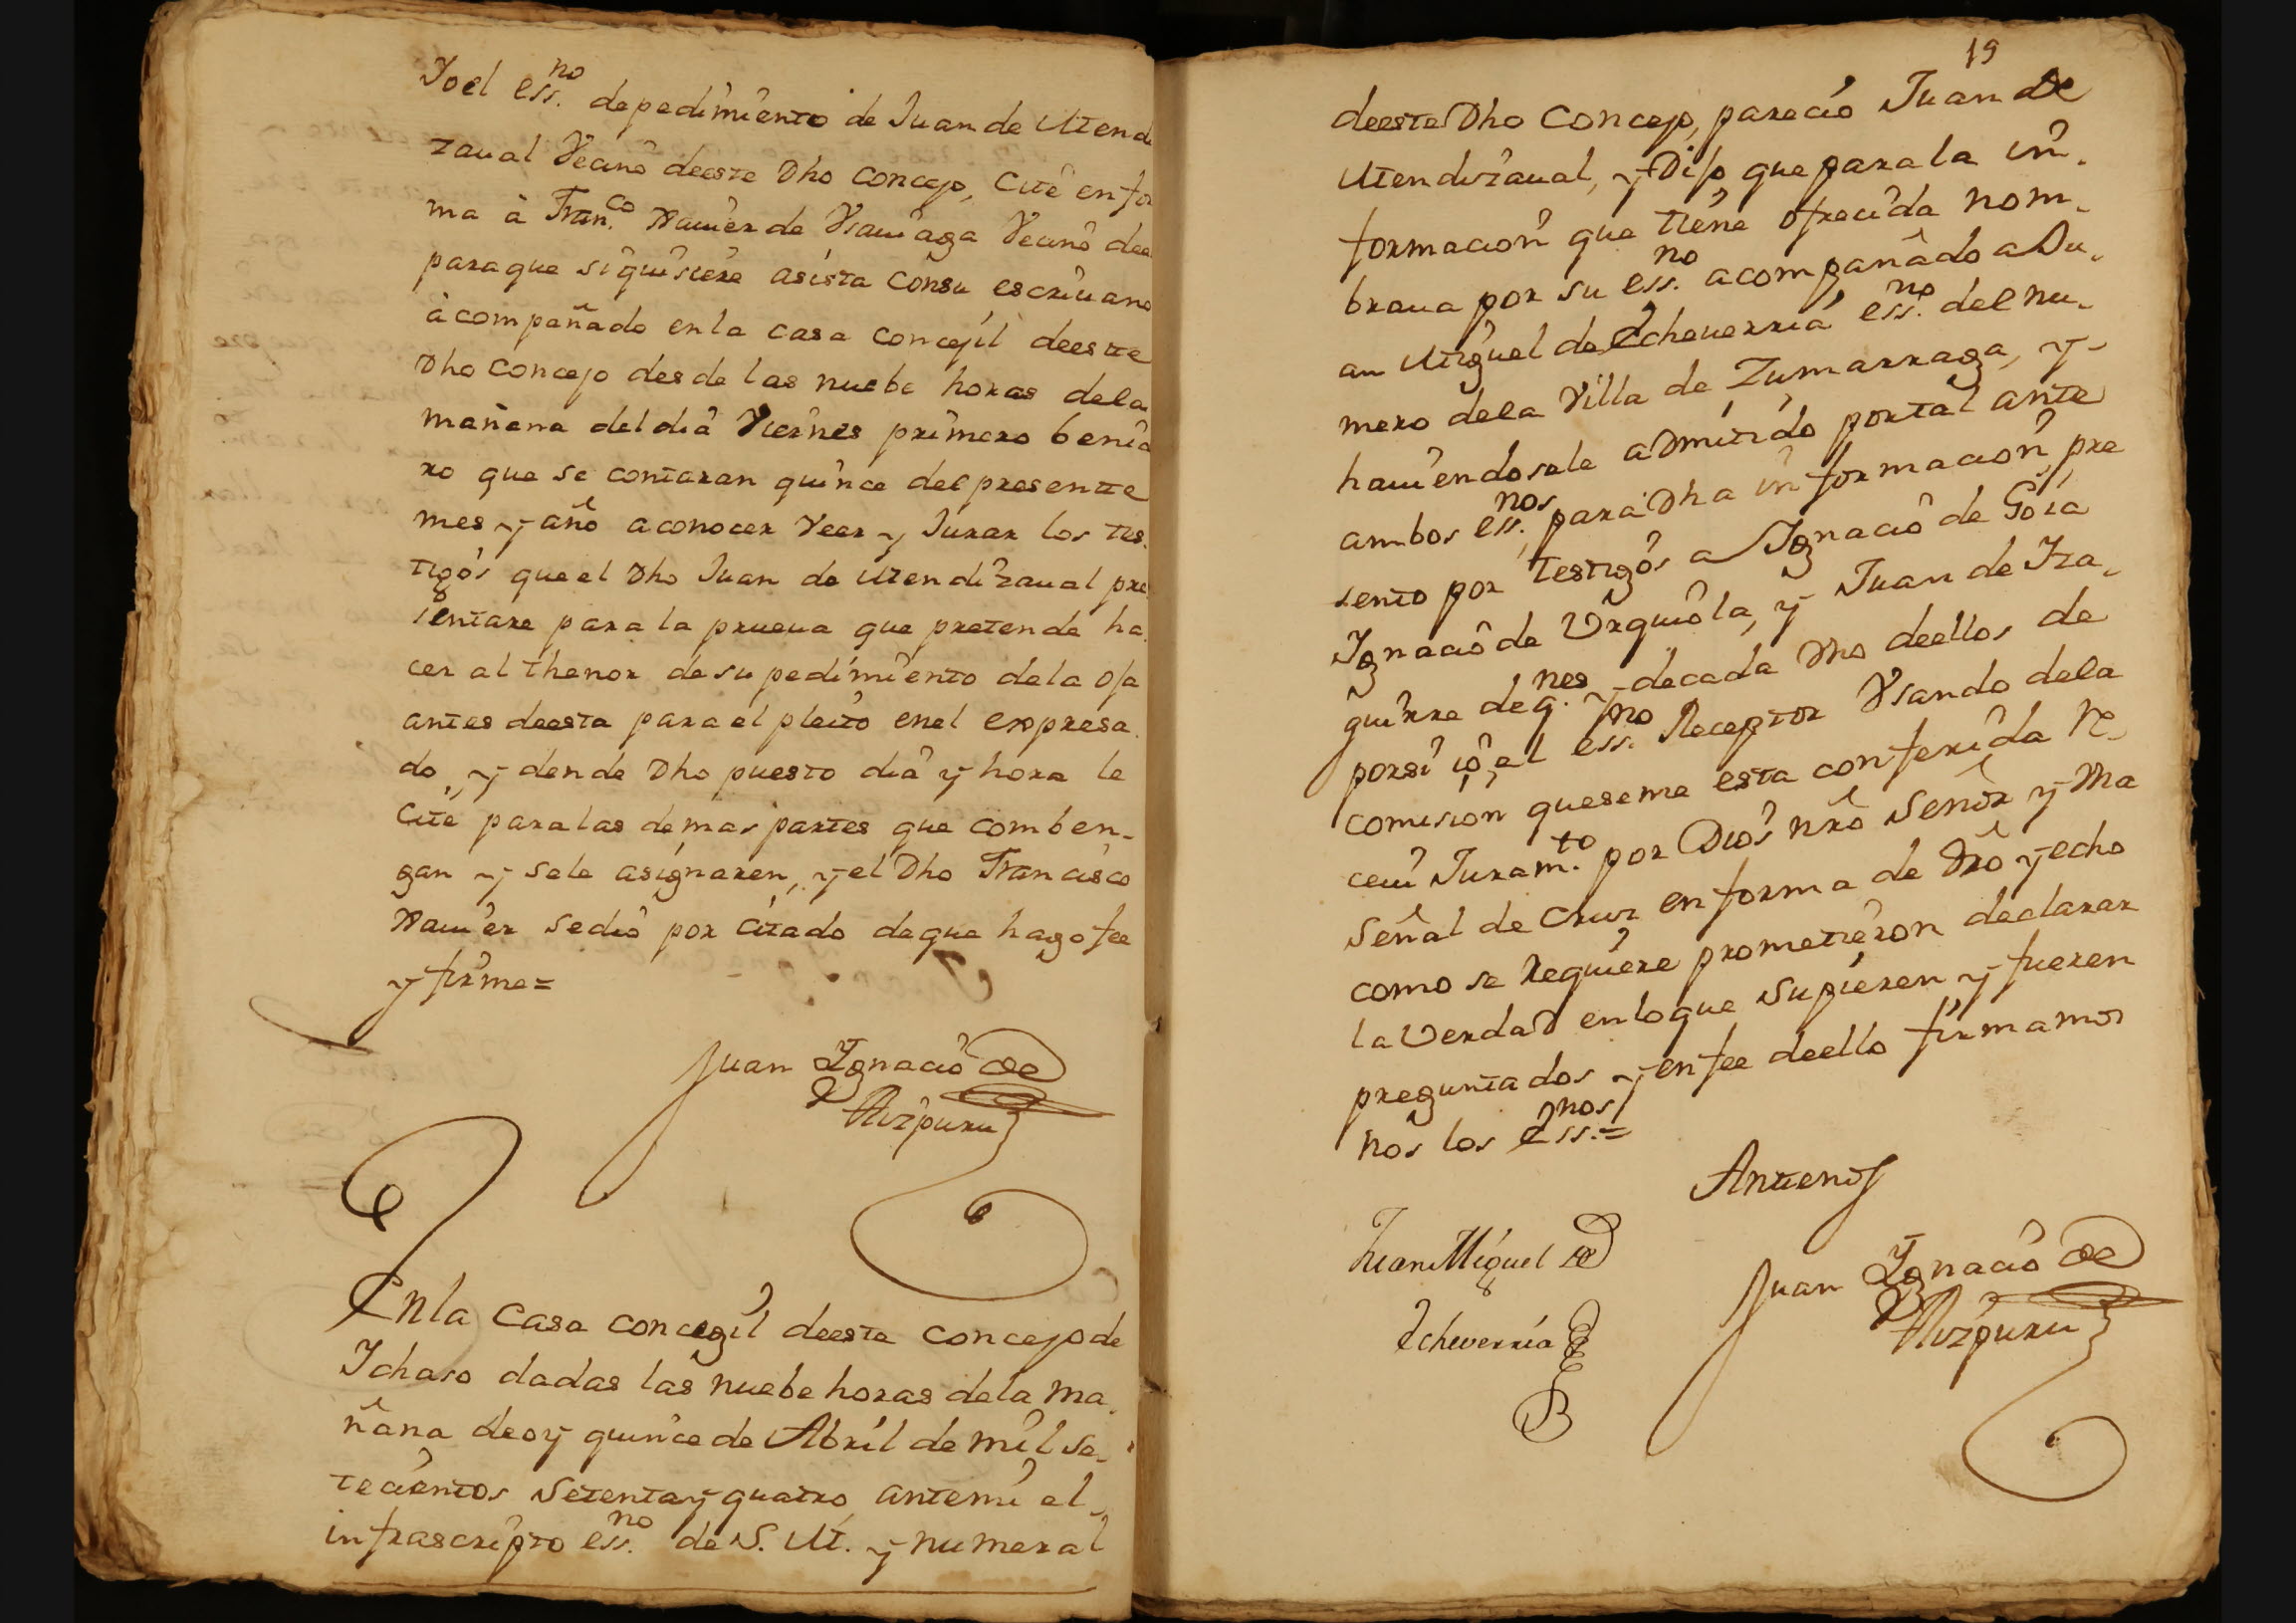 Yo el ess.no de pedimiento de Juan de Mendi
zaual Vecino de este Dho Concejo, Cité en for
ma à Fran.co Xauier de Ysauiaga Vecino de el
para que si quisiere asista con su escriuano
àcompañado en la casa Concejil de este
Dho Concejo desde las nuebe horas de la
mañana del dia Viernes primero benide
ro que se contaran quince del presente
mes y año a conocer veer y Jurar los tes-
tigos que el Dho Juan de Mendizaual pre
sentare para la prueua que pretende ha-
cer al thenor de su pedimiento de la oja
antes de esta para el pleito en el expresa-
do, y dende Dho puesto dia y hora le
Cité para las demas partes que comben-
gan y se le asignaren, y el Dho Francisco
Xauier se dió por Citado de que hago fee
y firme=
Juan Ygnacio de
Aizpuru
En la Casa concegil de esta concejo de
Ichaso dadas las nuebe horas de la ma-
ñana de oy quince de Abril de mil se-
tecientos setenta y quatro, ante mi el
infrascripto ess.no de S. M. y numeral
19
de este Dho Concejo, pareció Juan de
Mendizaual, y Dijo que para la in-
formacion que tiene ofrecida nom-
braua por su ess.no acompañado a Du-
an Miguel de Echeuerria ess.no del nu-
mero de la Villa de Zumarraga, y
hauiendosele admitido por tal ante
ambos ess.nos, para Dha informacion pre
sento por testigos a Ygnacio de Goia
Ygnacio de Vrquiola, y Juan de Yza-
guirre de q.nes y de cada Vno de ellos de
por si yo, el ess.no Receptor Vsando de la
comision que se me esta conferida Re-
ceui Juram.to por Dios nrō Señor y Vna
Señal de Cruz en forma de Drō y echo
como se Requiere prometieron declarar
la Verdad en lo que supieren y fueren
preguntados y en fee de ello firmamos
nos los Ess.nos=
Antemj
Juan Miguel de
Echeverria
Juan Ygnacio de
Aizpuru